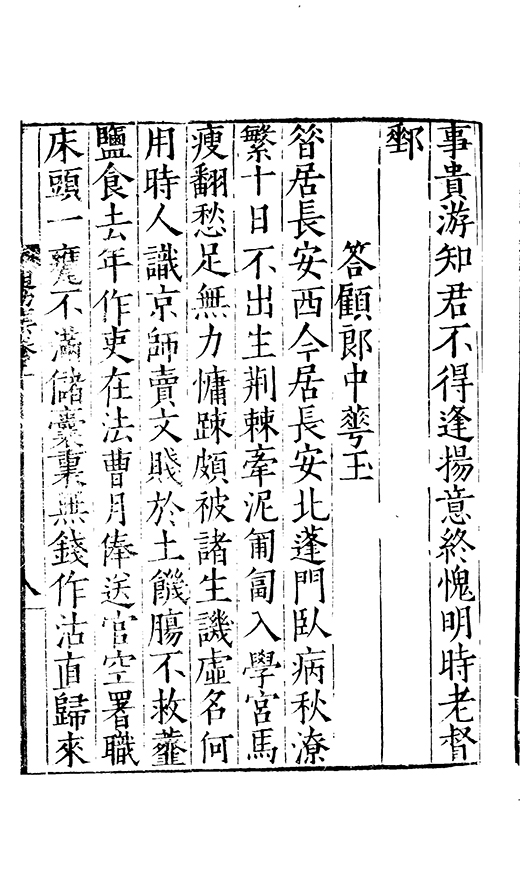 事貴游知君不得逢揚意終愧明時老督
郵
答顧郎中華玉
昝居長安西今居長安北蓬門臥病秋潦
繁十日不出生荆棘牽泥匍匐入學宮馬
瘦翻愁足無力慵踈頗被諸生譏虛名何
用時人識京師賣文賤於土饑膓不救虀
鹽食去年作吏在法曹月俸送官空署職
床頭一甕不滿儲囊裏無錢作沽直歸來